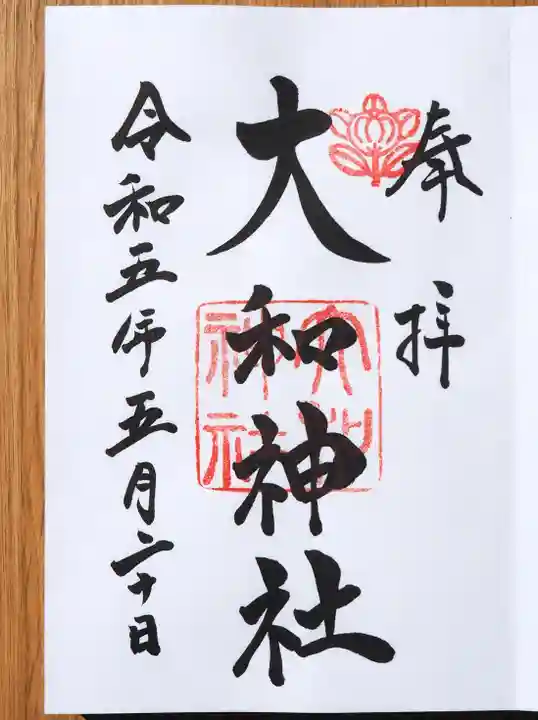 奉拝
大和神社
令和五年五月二十日
大和神社